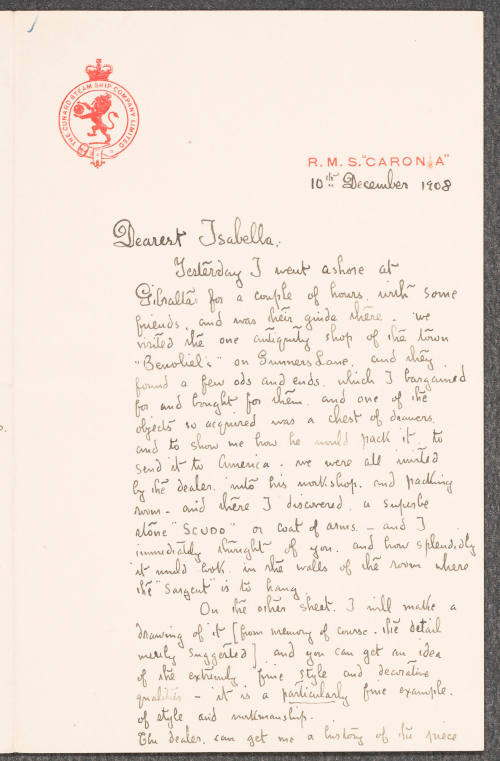 THE CUNARD STEAM SHIP COMPANY LIMITED
R.M.S. "CARONIA"
10th December 1908
Dearest Isabella,
Yesterday I went ashore at
Gibraltar for a couple of hours with some
friends. and was their guide there. we
visited the one antiquity shop of the town
"Benoliel's" on Gunners Lane. and they
found a few ods and ends. which I bargained
for and bought for them. and one of the
objects so acquired was a chest of drawers.
and to show me how he would pack it, to
send it to America. we were all invited
by the dealer. into his workshop. and packing
room – and there I discovered a superbe
stone "SCUDO" or coat of arms. – and I
immediately thought of you. and how splendidly
it would look. in the walls of the room where
the "Sargent" is to hang.
On the other sheet. I will make a
drawing of it [from memory of course. the detail
merely suggested] and you can get an idea
of the extremly fine style and decorative
qualities – it is a particularly fine example.
of style and workmanship.
The dealer. can get me a history of the piece